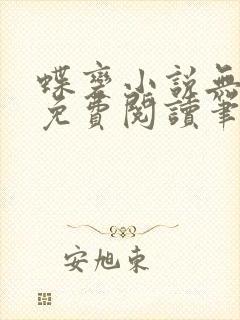 蝶變小説無
免費閲讀筆
安旭東